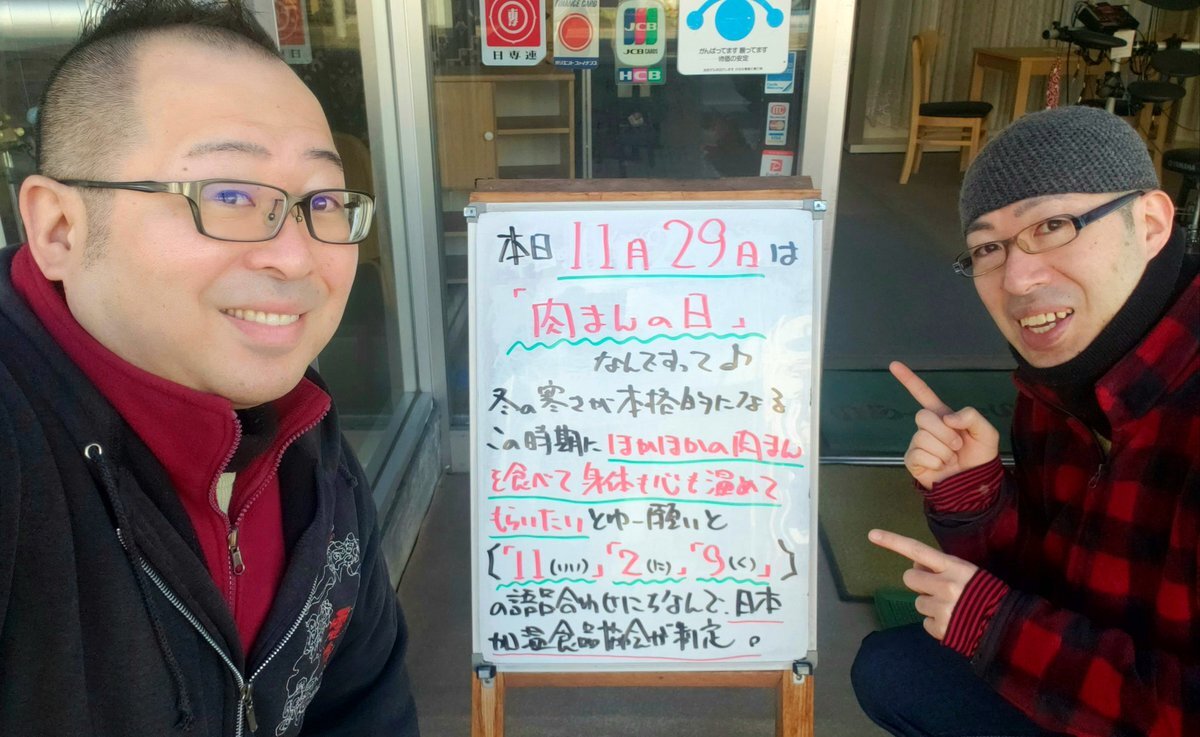 日専連
FINANCE CARD
JCB
JCB CARDS
HCB
がんばってます 願ってます
物価の安定
VISA
YAMAHA
本日 11月29日は
「肉まんの日」
なんですって♪
冬の寒さが本格的になる
この時期に ほかほかの肉まん
を食べて 身体も心も温めて
もらいたいとゆー願いと
【「11(いい)」「2(に)」「9(く)」】
の語呂合わせにちなんで、日本
加温食品協会が制定。